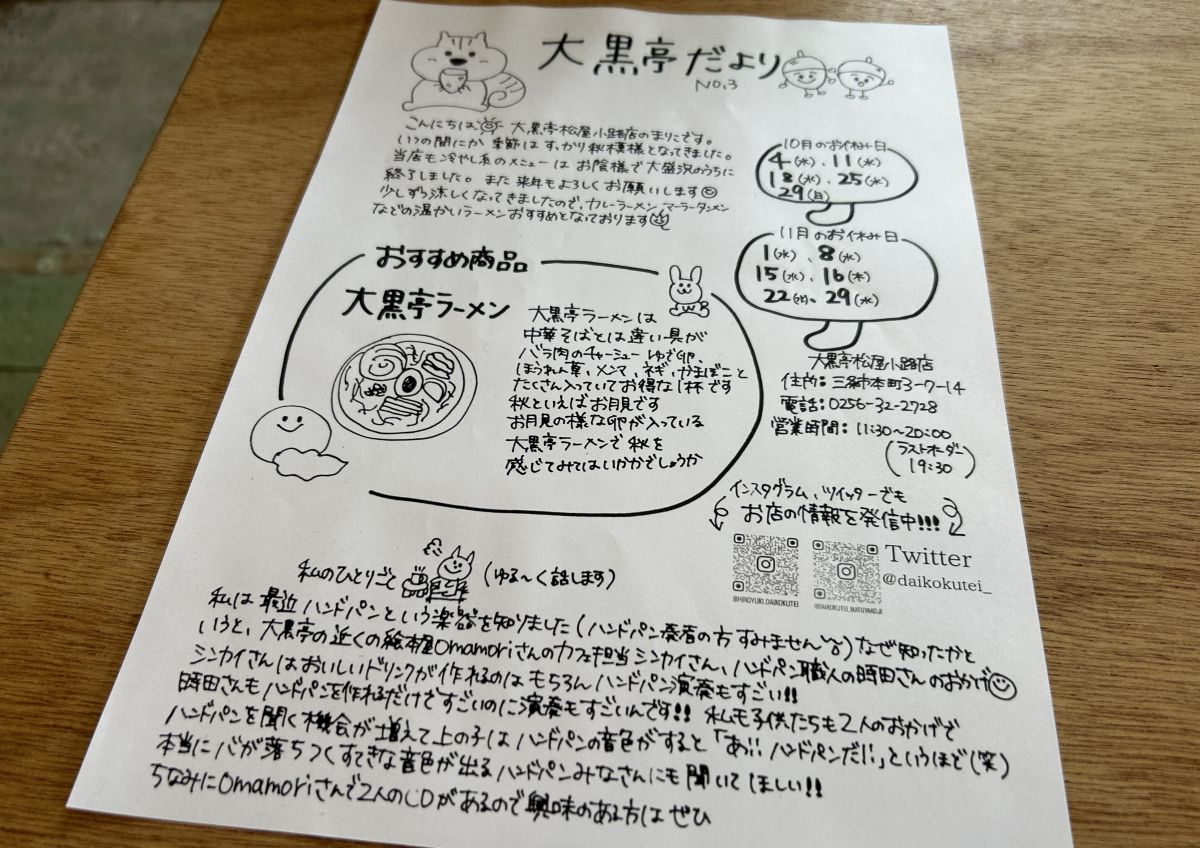 大黒亭だより
No.3
こんにちは 大黒亭松屋小路店のまりこです。
いつの間にか 季節は すっかり秋模様となってきました。
当店も冷やし系のメニューは お陰様で大盛況のうちに
終了しました。また来年もよろしくお願いします
少しずつ涼しくなってきましたので、カレーラーメン マーラータンメン
などの温かいラーメンおすすめとなっております
10月のお休み日
4(水)、11(水)
18(水)、25(水)
29(日)
11月のお休み日
1(水)、8(水)
15(水)、16(木)
22(水)、29(水)
おすすめ商品
大黒亭ラーメン
大黒亭ラーメンは
中華そばとは違い具が
バラ肉のチャーシュー ゆで卵、
ほうれん草、メンマ、ネギ、かまぼこと
たくさん入っていてお得な1杯です
秋といえばお月見です
お月見の様な卵が入っている
大黒亭ラーメンで秋を
感じてみてはいかがでしょうか
大黒亭松屋小路店
住所：三条市本町3-7-14
電話：0256-32-2728
営業時間：11:30〜20:00
(ラストオーダー
19:30)
インスタグラム、ツイッターでも
お店の情報を発信中!!!
Twitter
@daikokutei_
@HIROYUKI.DAIKOKUTEI
@DAIKOKUTEI_MATUYAKOJI
私のひとりごと (ゆる〜く話します)
私は最近ハンドパンという楽器を知りました(ハンドパン奏者の方すみません)なぜ知ったかと
いうと、大黒亭の近くの絵本屋Omamoriさんのカフェ担当シンカイさん、ハンドパン職人の時田さんのおかげ
シンカイさんはおいしいドリンクが作れるのはもちろんハンドパン演奏もすごい!!
時田さんもハンドパンを作れるだけですごいのに演奏もすごいんです!! 私も子供たちも2人のおかげで
ハンドパンを聞く機会が増えて上の子はハンドパンの音色がすると「あぃぃハンドパンだ!!」というほど(笑)
本当に心が落ちつくすてきな音色が出るハンドパンみなさんにも聞いてほしい!!
ちなみにOmamoriさんで2人のCDがあるので興味のある方はぜひ